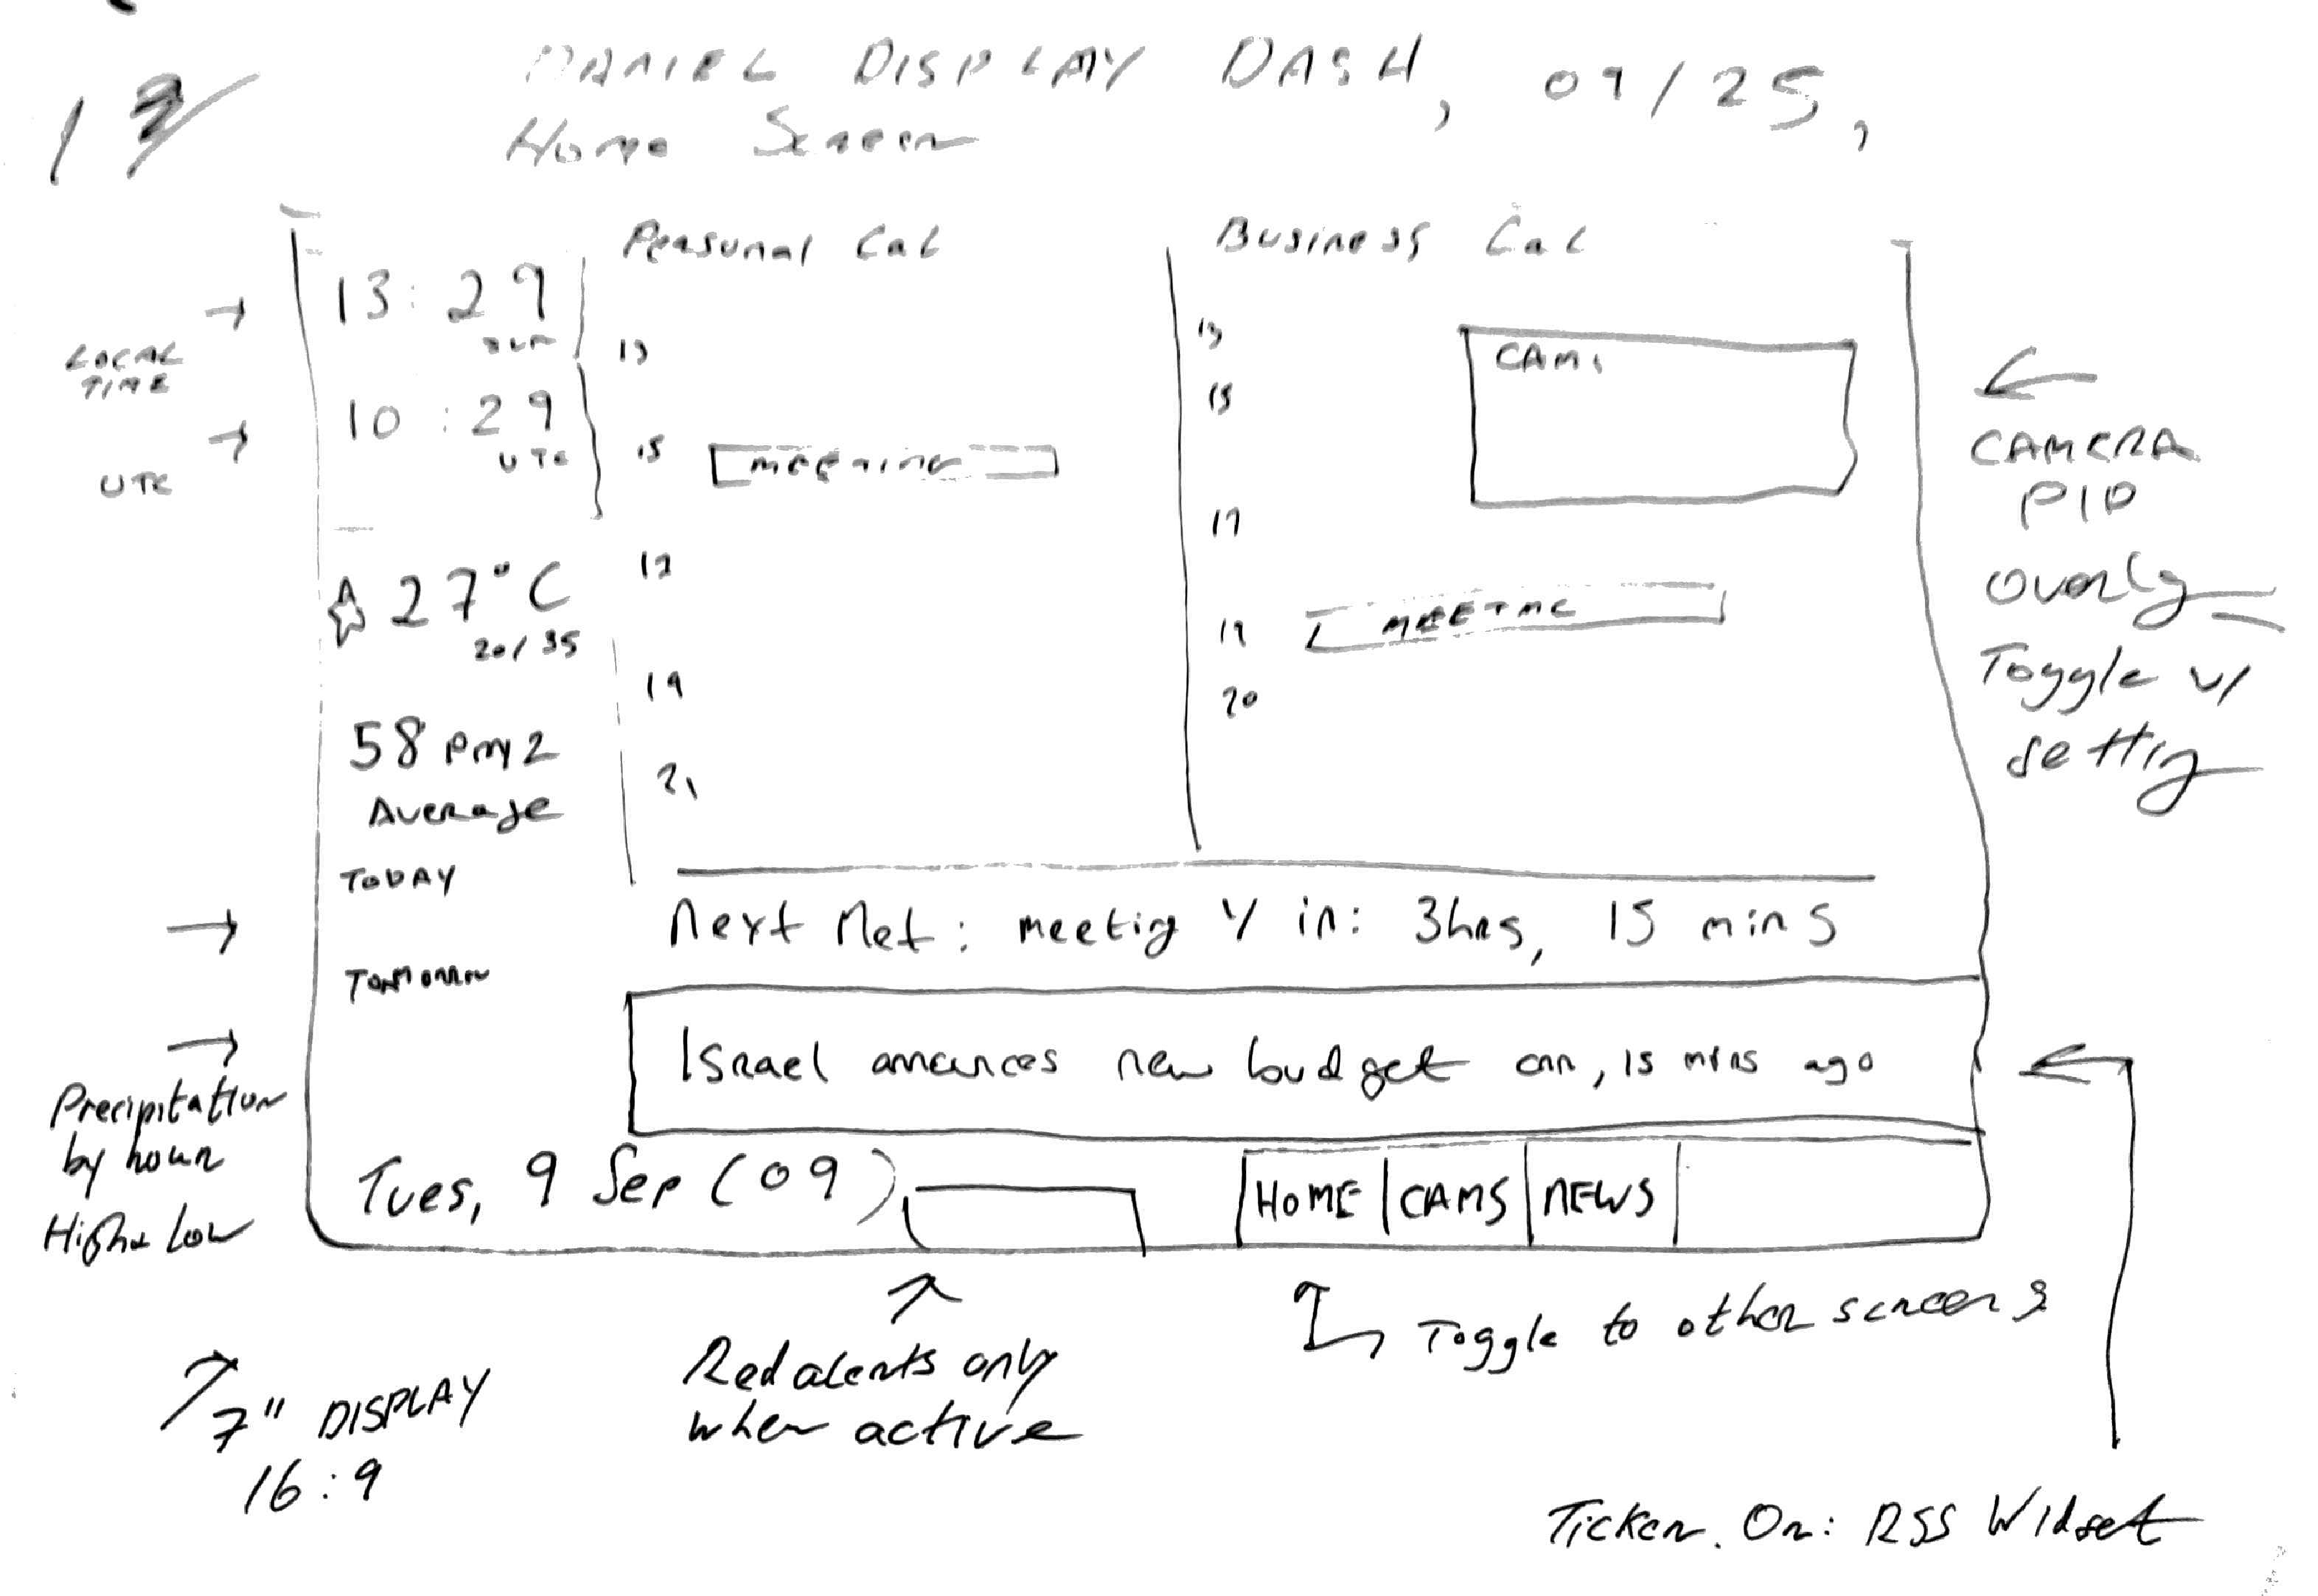 DANIEL DISPLAY DASH, 09/25,
Home Screen
Personal Cal
Business Cal
13:29
LOCAL
TIME
10:29
UTC
UTC
27°C
20/35
58 PM2
Average
TODAY
TOMORROW
13
15
MEETING
17
19
21
13
15
17
19
MEETING
20
CAM1
CAMERA
PIP
Overlay
Toggle w/
setting
Next Met: meeting Y in: 3hrs, 15 mins
Israel announces new budget, 15 mins ago
Tues, 9 Sep (09)
HOME
CAMS
NEWS
Precipitation
by hour
High + Low
7" DISPLAY
16:9
Red alerts only
when active
Toggle to other screens
Ticker. Or: RSS Widget